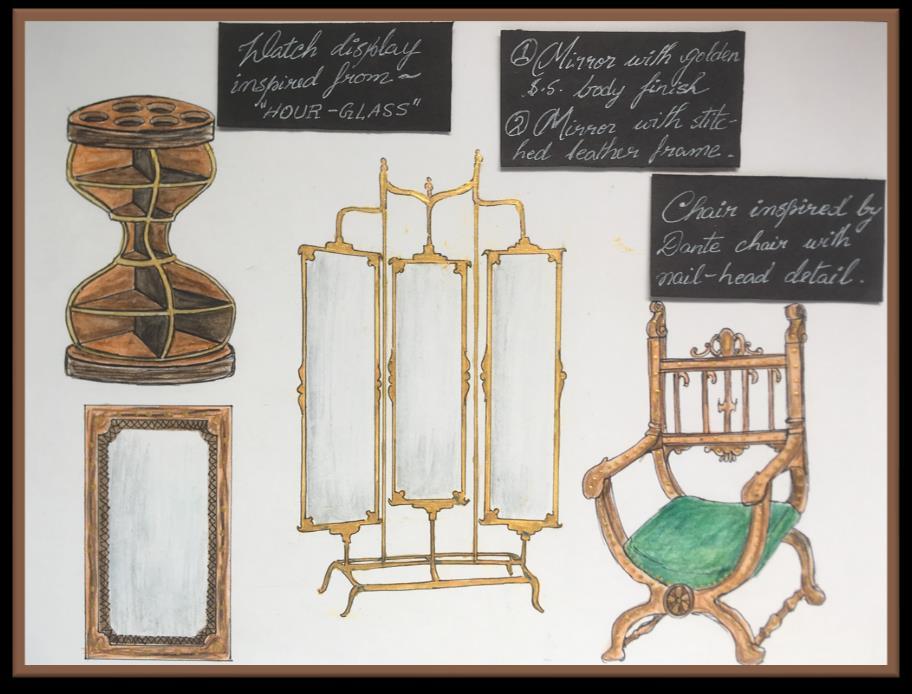 Watch display
inspired from ~
"HOUR-GLASS"
① Mirror with golden
s.s. body finish
② Mirror with stitc-
hed leather frame.
Chair inspired by
Dante chair with
nail-head detail.